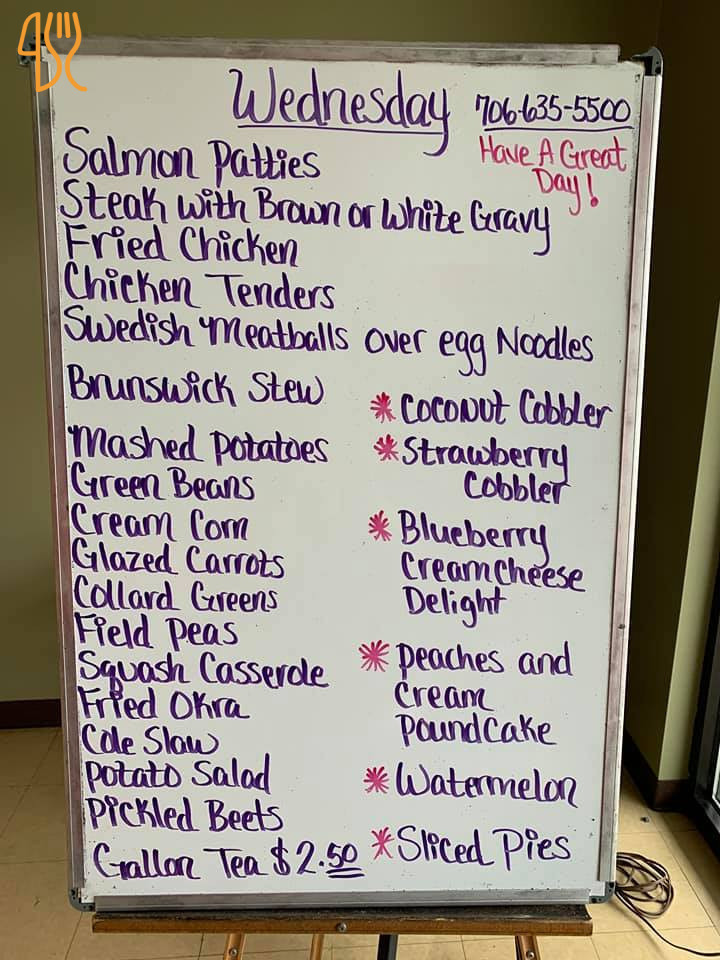 Wednesday
706-635-5500
Have A Great
Day!
Salmon Patties
Steak with Brown or White Gravy
Fried Chicken
Chicken Tenders
Swedish Meatballs over egg Noodles
Brunswick Stew
Mashed Potatoes
Green Beans
Cream Corn
Glazed Carrots
Collard Greens
Field Peas
Squash Casserole
Fried Okra
Cole Slaw
Potato Salad
Pickled Beets
Gallon Tea $2.50
* Coconut Cobbler
* Strawberry
Cobbler
* Blueberry
Creamcheese
Delight
* Peaches and
Cream
Poundcake
* Watermelon
* Sliced Pies